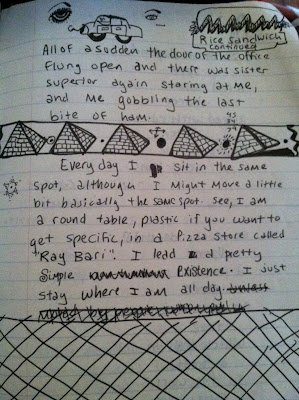 Rice Sandwich
continued
All of a sudden the dour of the office
flung open and there was sister
superior again staring at me,
and me gobbling the last
bite of ham.
Everyday I sit in the same
spot, although I might move a little
bit basically the same spot. See, I am
a round table, plastic if you want to
get specific, in a Pizza store called
"Ray Bari". I lead a pretty
simple existence. I just
stay where I am all day.